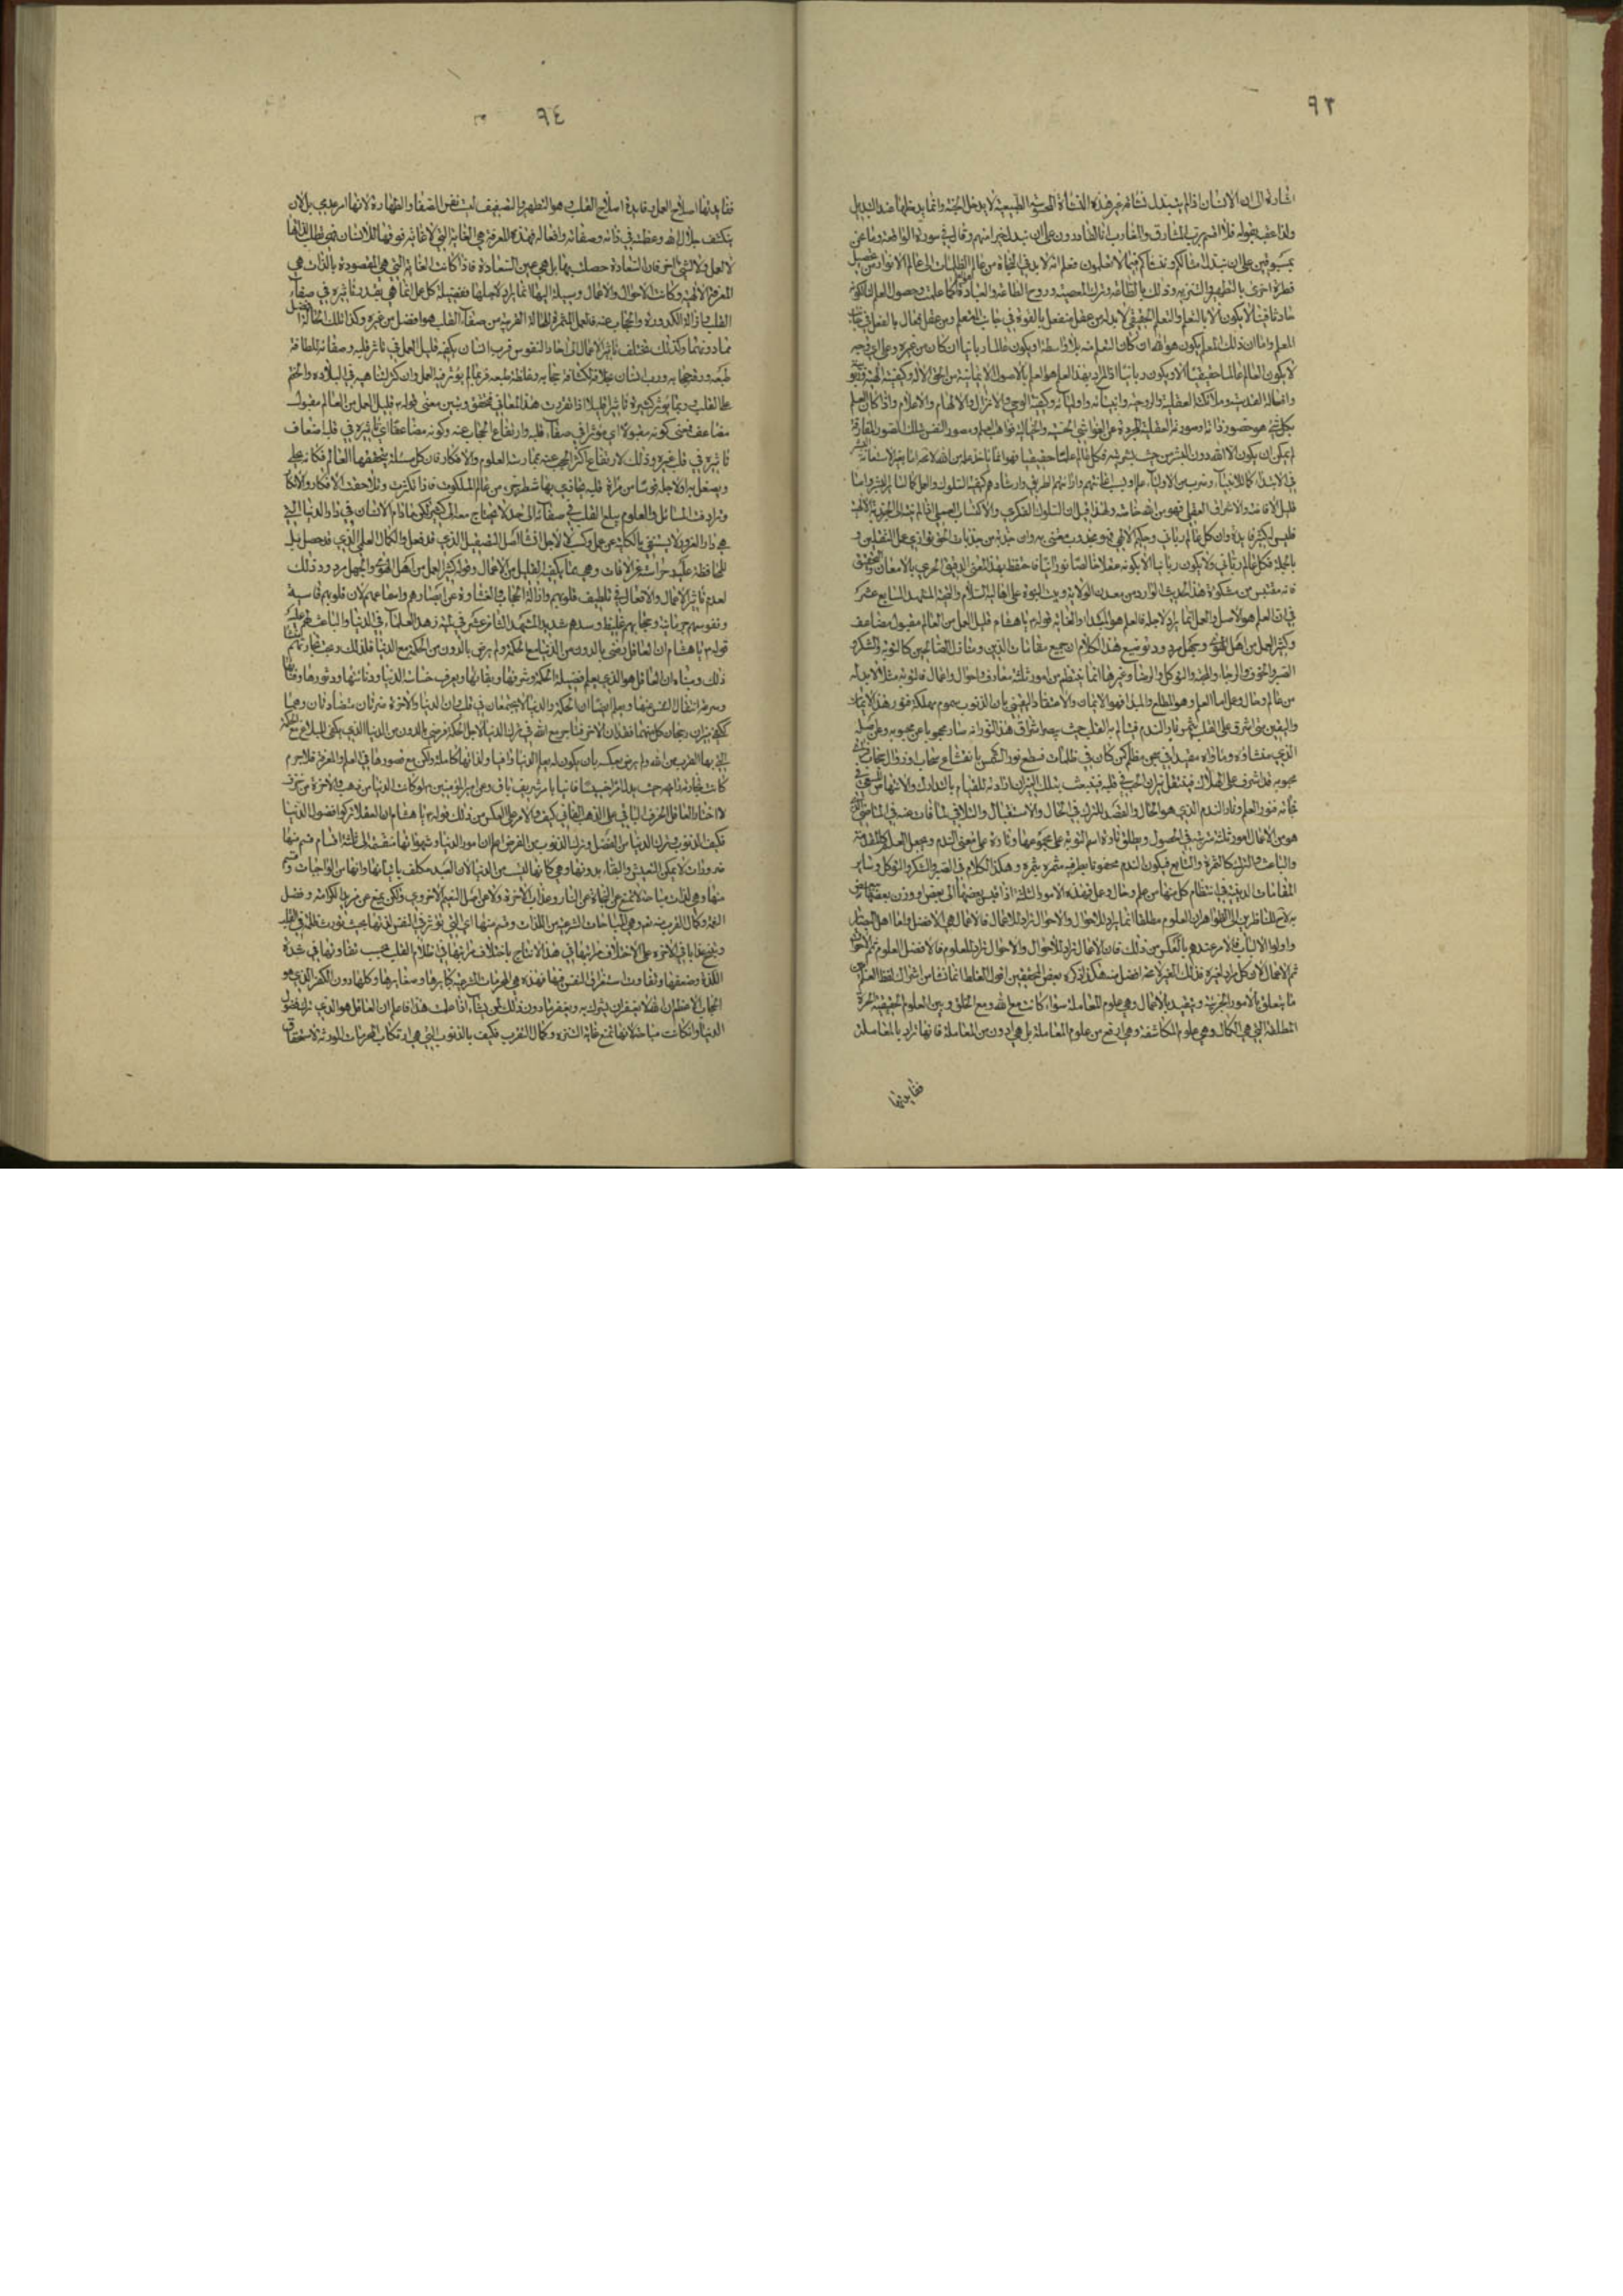 ٩٣
اشارة الى ان الانسان اذا لم يتبدل نشأته غير هذه النشأة المحسوسة الطبيعية لا يدخل الجنة وانما يدخلها عند التبديل
ولذا عقب بقوله فلا اقسم برب المشارق والمغارب انا لقادرون على ان نبدل خيرا منهم وقال في سورة الواقعة وما نحن
بمسبوقين على ان نبدل امثالكم وننشأكم فيما لا تعلمون فعلم انه لا بد في النجاة من عالم الظلمات الى عالم الانوار من تحصيل
فطرة اخرى بالتطهير والتنزيه وذلك بالطاعة وترك المعصية وروح الطاعة والعبادة كما علمت وحصول العلم
حادثا فينا لا يكون الا بالتعلم والتعلم الحقيقي لا بد له من عقل منفعل بالقوة في جانب المتعلم ومن عقل فعال بالفعل في جانب
المعلم واما ان ذلك المعلم يكون هو الله ان كان التعلم منه بلا واسطة او يكون عالما ربانيا ان كان من غيره وعلى اي وجه
لا يكون العالم عالما حقيقيا الا ويكون ربانيا اذ المراد بهذا العلم هو العلم بالاصول الايمانية من الحق الاله وكيفية
وافعاله القدسية وملائكته العقلية والروحية وانبيائه واوليائه وكيفية الوحي والانزال والالهام والاعلام واذا كان العلم
بكل شيء هو حضور ذاته وصورته العقلية المجردة عن الغواشي الحسية والخيالية فواهب العلم ومصور النفس بتلك الصور المفارقة
لم يمكن ان يكون الا الله دون البشر من حيث بشريته فكل عالم علما حقيقيا فهو انما ياخذ علمه من الله
في الابتداء كما للانبياء وضرب من الاولياء عليهم او بسبب اعانتهم وارائتهم الطريق وارشادهم كيفية السلوك والعمل كما لسائر البشر واما
قليل الافاضة والاشراف العقلي فهو من الله خاصة ولهذا قيل ان السلوك الفكري والاكتساب العملي
فليس لكثير فايدة وان كل عالم رباني وحكيم الاهي فهو مجذوب معنى به وان جذبة من جذبات الحق توازي عمل الثقلين و
بالجملة فكل عالم رباني ولا يكون ربانيا الا بكونه عقلا خالصا نورانيا فاحتفظ بهذا المعنى الدقيق الحري بالامعان والتحقيق
فانه مقتبس من مشكوة هذا الحديث الوارد من معدن الولاية وبيت النبوة على اهله السلام والتحية المشهد السابع عشر
في ان العلم هو الاصل والعمل انما يراد لاجله فالعلم هو المبدأ والغاية قوله ع يا هشام قليل العمل من العالم مقبول مضاعف
وكثير العمل من اهل الهوى والجهل مردود توضيح هذا الكلام ان جميع مقامات الدين ومنازل الصالحين كالتوبة والشكر و
الصبر والخوف والرجاء والمحبة والتوكل والرضا وغيرها انما ينتظم من امور ثلثة معارف واحوال واعمال فالتوبة مثلا لا بد له
من علم وحال وعمل اما العلم وهو المطلع والمبدأ فهو الايمان والاعتقاد اليقيني بان الذنوب سموم مهلكة فنور هذا الايمان
واليقين متى اشرق على القلب يثمر نار الندم فيتالم به القلب حيث يبصر باشراق هذا النور انه صار محجوبا عن محبوبه
هو من الاعمال امور ثلثة مترتبة في الحصول ويطلق تارة اسم التوبة على مجموعها وتارة على معنى الندم ويجعل العلم كالمقدمة
والباعث والترك كالثمرة والتابع فيكون الندم محفوفا بطرفيه مثمره وثمرته وهكذا الكلام في الصبر والشكر والتوكل وساير
المقامات الدينية في انتظام كل منها من علم وحال وعمل فهذه الامور الثلثة اذا قيس بعضها الى بعض ووزن بعضها
لاح للناظرين الى ظواهر ان العلوم مطلقا انما يراد للاحوال والاحوال تراد للاعمال فالاعمال هي الافضل واما اهل البصاير
واولوا الالباب فالامر عندهم بالعكس من ذلك فان الاعمال تراد للاحوال والاحوال تراد للعلوم فالافضل العلوم ثم الاحوال
ثم الاعمال لان كل مراد لغيره فذلك الغير لا محالة افضل منه هكذا ذكره بعض المحققين اقول الغلط انما نشأ من اشتراك لفظ العلم
ما يتعلق بالامور الجزئية ويتقيد بالاعمال وهي علوم المعاملة سواء كانت مع الله او مع الخلق وبين العلوم الحقيقية الحرة
المطلقة التي هي الكمال وهي علوم المكاشفة وهي ارفع من علوم المعاملة بل هي ادون من المعاملة فانها تراد بالمعاملة
ففايدتها
٩٤
ففايدتها اصلاح العمل وفايدة اصلاح القلب هو التطهير والتصفية ليست نفس الصفاء والطهارة لانها امر عدمي بل لان
ينكشف جلال الله وعظمته في ذاته وصفاته وافعاله فهذه المعرفة هي الغاية التي لا غاية فوقها للانسان فهي تطلب لذاتها
لا لعمل ولا لشيء اخر فان السعادة حصلت بها بل هي عين السعادة فاذا كانت الغاية التي هي المقصودة بالذات هي
المعرفة الالهية وكانت الاحوال والاعمال وسيلة اليها انما يراد لاجلها ففضيلة كل عمل انما هي بقدر تاثيره في صفاء
القلب وازالة الكدورة والحجاب عنه فالعمل المثمر للحالة القريبة من صفاء القلب هو افضل من غيره وكذا تلك الحالة
مما دونها وكذلك يختلف تاثير الاعمال في احاد النفوس فرب انسان يكفيه قليل العمل في تاثر قلبه وصفائه للطافة
طبعه ورقة حجابه ورب انسان بخلافه لكثافة حجابه وغلظة طبعه فربما لم يؤثر فيه العمل وان كثر لتناهيه في البلادة والختم
على القلب وربما يؤثر كثيره تاثيرا قليلا اذا تقررت هذا المعاني فتحقق وتبين معنى قوله ع قليل العمل من العالم مقبول
مضاعف فمعنى كونه مقبولا اي مؤثرا في صفاء قلبه وارتفاع الحجاب عنه وكونه مضاعفا اي تاثيره في قلبه اضعاف
تاثيره في قلب غيره وذلك لارتفاع اكثر الحجب عنه بممارسة العلوم والافكار فان كل مسئلة يتحققها العالم فكانه جلى
وصقل بها ولاجلها وجها من مرآة قلبه فحاذى بها شطر حق من عالم الملكوت فاذا تكثرت وتلاحقت الافكار والانظار
وترادفت المسائل والعلوم يبلغ القلب في صفائه الى حد لا يحتاج معه الى كثير عمل لكن ما دام الانسان في دار الدنيا التي
هي دار الغرور لا يستغني بالكلية عن عمل وكسب لا لاجل انشاء اصل التصقيل الذي قد فعل والكمال العلمي الذي قد حصل بل
للمحافظة عليه وحراسته عن الافات وهي مما يكفيه القليل من الاعمال وقوله كثير العمل من اهل الهوى والجهل مردود وذلك
لعدم تاثير الاعمال والافعال في تلطيف قلوبهم وازالة الحجاب والغشاوة عن ابصارهم واسماعهم لان قلوبهم قاسية
ونفوسهم جرمانية وحجابهم غليظ وسدهم شديد المشهد الثامن عشر في لمية زهد العلماء في الدنيا والباعث لهم عليه
قوله ع يا هشام ان العاقل رضي بالدون من الدنيا مع الحكمة ولم يرض بالدون من الحكمة مع الدنيا فلذلك ربحت تجارتهم
ذلك وبيانه ان العاقل هو الذي يعلم فضيلة الحكمة وشرفها وبقائها ويعرف خساسة الدنيا ودنائتها ودثورها وفنائها
وسرعة انتقال النفس عنها ويعلم ايضا ان الحكمة والدنيا لا يجتمعان في قلب فان الدنيا والاخرة ضرتان متضادتان وهما
ككفتي ميزان رجحان كل منهما نقصان الاخر فتاجر مع الله في ترك الدنيا لاجل الحكمة فرضي بالدون من الدنيا الذي يكفي للبلاغ مع الحكمة
التي بها القرب من الله ولم يرض بعكسه بان يكون له نعيم الدنيا وافيا ولذاتها كاملة ولكن مع قصورها في العلم والمعرفة فلا جرم
كانت تجارته رابحة حيث بدل امرا خسيسا فانيا بامر شريف باق وعن امير المؤمنين ع لو كانت الدنيا من ذهب والاخرة من خزف
لاختار العاقل الخزف الباقي على الذهب الفاني كيف والامر على العكس من ذلك قوله ع يا هشام ان العقلاء تركوا فضول الدنيا
فكيف الذنوب وترك الدنيا من الفضل وترك الذنوب من الفرض اعلم ان امور الدنيا وشهواتها منقسمة الى ثلثة اقسام قسم منها
ضرورات لا يمكن التعيش والبقاء بدونها وهي كانها ليست من الدنيا لان العبد مكلف باتيانها وانها من الواجبات وقسم
منها وهي لذات مباحة لا تمنع عن النجاة من النار وعذاب الاخرة ولا عن اصل النعيم الاخروي ولكن يمنع عن مزيد الكرامة وفضل
النعمة وكمال القرب منه تعالى وهي المباحات الشرعية من اللذات وقسم منها اي التي تؤثر في النفس لذتها بحيث تورث ظلمة في القلب
وينتج عذابا في الاخرة على اختلاف مراتبها في هذا الانتاج باختلاف مراتبها في اظلام القلب بحسب تفاوتها في شدة
اللذة وضعفها وتفاوت استغراق النفس فيها فهذه هي المحرمات الشرعية كبايرها وصغايرها وكلها دون الكفر الذي هو
الحجاب الاعظم ان الله لا يغفر ان يشرك به ويغفر ما دون ذلك لمن يشاء اذا علمت هذا فاعلم ان العاقل هو الذي ترك فضول
الدنيا وان كانت مباحة لانها تمنع غاية التنزه وكمال القرب فكيف بالذنوب التي هي ارتكاب المحرمات المورثة لاستحقاق